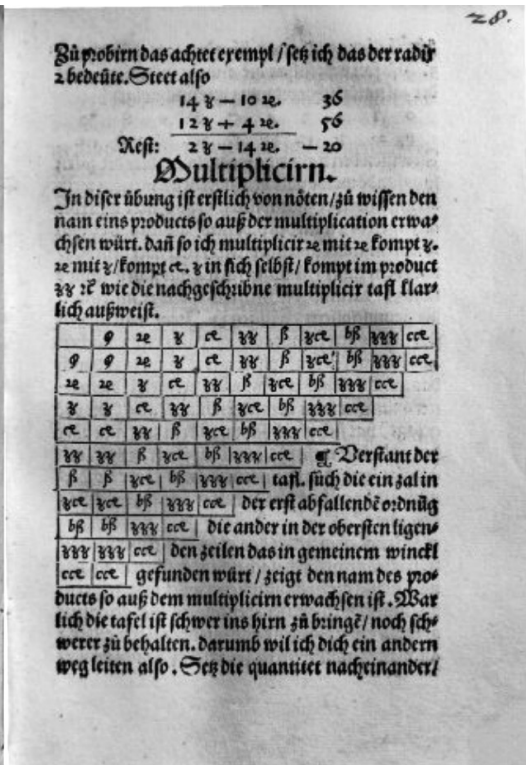 28.
Zů probirn das achtet exempl / setz ich das der radix
2 bedeüte. Steet also
14 ʒ — 10 ꝝ. 36
12 ʒ + 4 ꝝ. 56
Rest: 2 ʒ — 14 ꝝ. — 20
Multiplicirn.
In diser übung ist erstlich von nöten / zů wissen den
nam eins products so auß der multiplication erwa⸗
chsen würt. dañ so ich multiplicir ꝝ mit ꝝ kompt ʒ.
ꝝ mit ʒ / kompt ce. ʒ in sich selbst / kompt im product
ʒʒ ꝛc̃ wie die nachgeschribne multiplicir tafl klar⸗
lich außweist.
φ ꝝ ʒ ce ʒʒ ß ʒce bß ʒʒʒ cce
φ φ ꝝ ʒ ce ʒʒ ß ʒce bß ʒʒʒ cce
ꝝ ꝝ ʒ ce ʒʒ ß ʒce bß ʒʒʒ cce
ʒ ʒ ce ʒʒ ß ʒce bß ʒʒʒ cce
ce ce ʒʒ ß ʒce bß ʒʒʒ cce
ʒʒ ʒʒ ß ʒce bß ʒʒʒ cce ¶ Verstant der
ß ß ʒce bß ʒʒʒ cce tafl. sůch die ein zal in
ʒce ʒce bß ʒʒʒ cce der erst abfallendẽ ordnũg
bß bß ʒʒʒ cce die ander in der obersten ligen⸗
ʒʒʒ ʒʒʒ cce den zeilen das in gemeinem winckl
cce cce gefunden würt / zeigt den nam des pro⸗
ducts so auß dem multiplicirn erwachsen ist. War
lich die tafel ist schwer ins hirn zů bringẽ / noch sch⸗
werer zů behalten. darumb wil ich dich ein andern
weg leiten also. Setz die quantitet nacheinander /